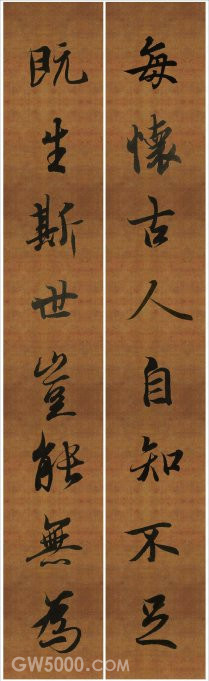 每懷古人自知不足
既生斯世豈能無為
GW5000.com